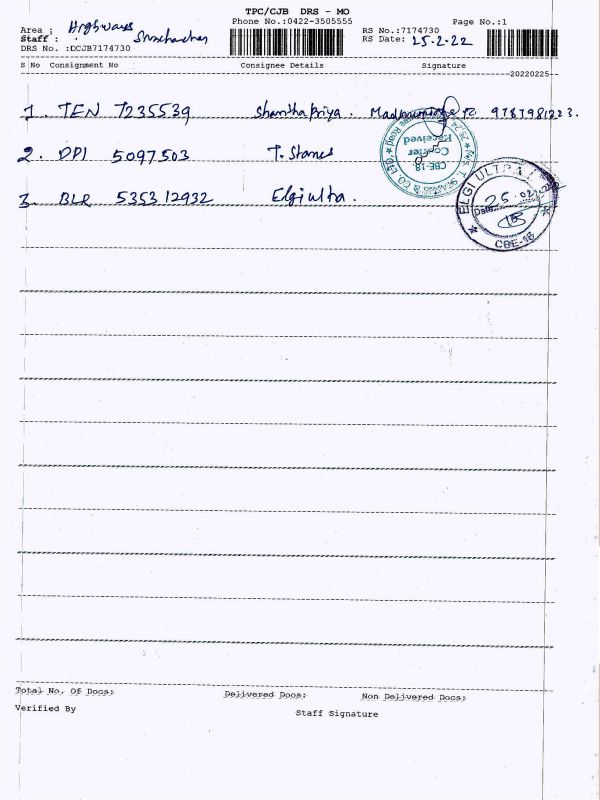 TPC/CJB DRS - MO
Phone No.:0422-3505555
Page No.:1
Area : Highways
RS No.:7174730
Staff :
RS Date: 25-2-22
DRS No. :DCJB7174730
S No Consignment No Consignee Details Signature
20220225
1. TEN 7235539 Shanthapriya. 9787981223.
2. DPI 5097503 T. Stanes
3. BLR 535312932 Elgi ultra.
CBE-18
Courier
Received
ELGI ULTRA
Date
25
CBE-18
Total No. Of Docs: Delivered Docs: Non Delivered Docs:
Verified By
Staff Signature